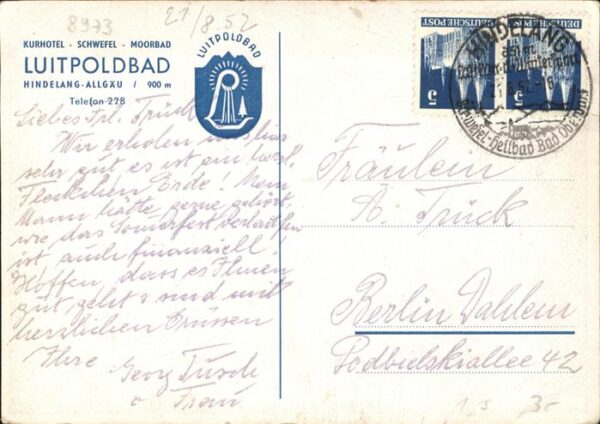 8973
21/8.52
KURHOTEL - SCHWEFEL - MOORBAD
LUITPOLDBAD
HINDELANG-ALLGÄU / 900 m
Telefon 228
LUITPOLDBAD
DEUTSCHE POST
5
DEUTSCHE POST
5
HINDELANG
Schwefel-Heilbad Bad Oberdorf
Liebes Frl. Trück
Wir erholen uns hier
sehr gut es ist ein herrl.
Fleckchen Erde! Mein
Mann hätte gerne gehört
wie das Sommerfest verlaufen
ist auch finanziell!
Hoffen, dass es Ihnen
gut geht & sind mit
herzlichen Grüssen
Ihre
Georg Tusch
o Frau
Fräulein
A. Trück
Berlin Dahlem
Podbielskiallee 42